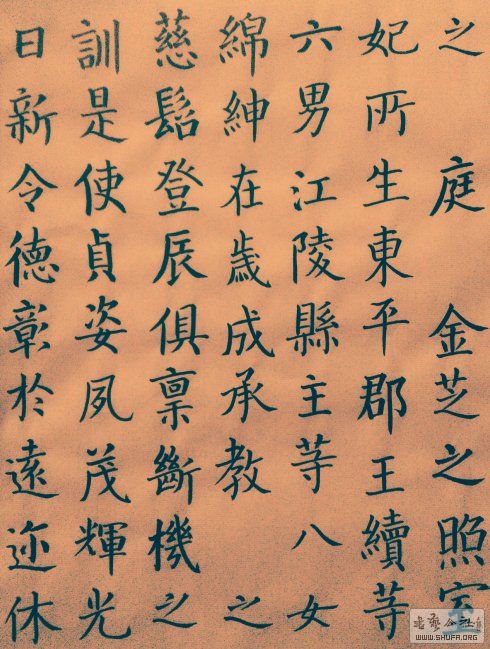 之庭金芝之照
妃所生東平郡王續等
六男江陵縣主等八女
綿紳在歲成承教之
慈髫登辰俱稟斷機之
訓是使貞姿夙茂輝光
日新令德彰於遠迩休
WWW.SHUFA.ORG